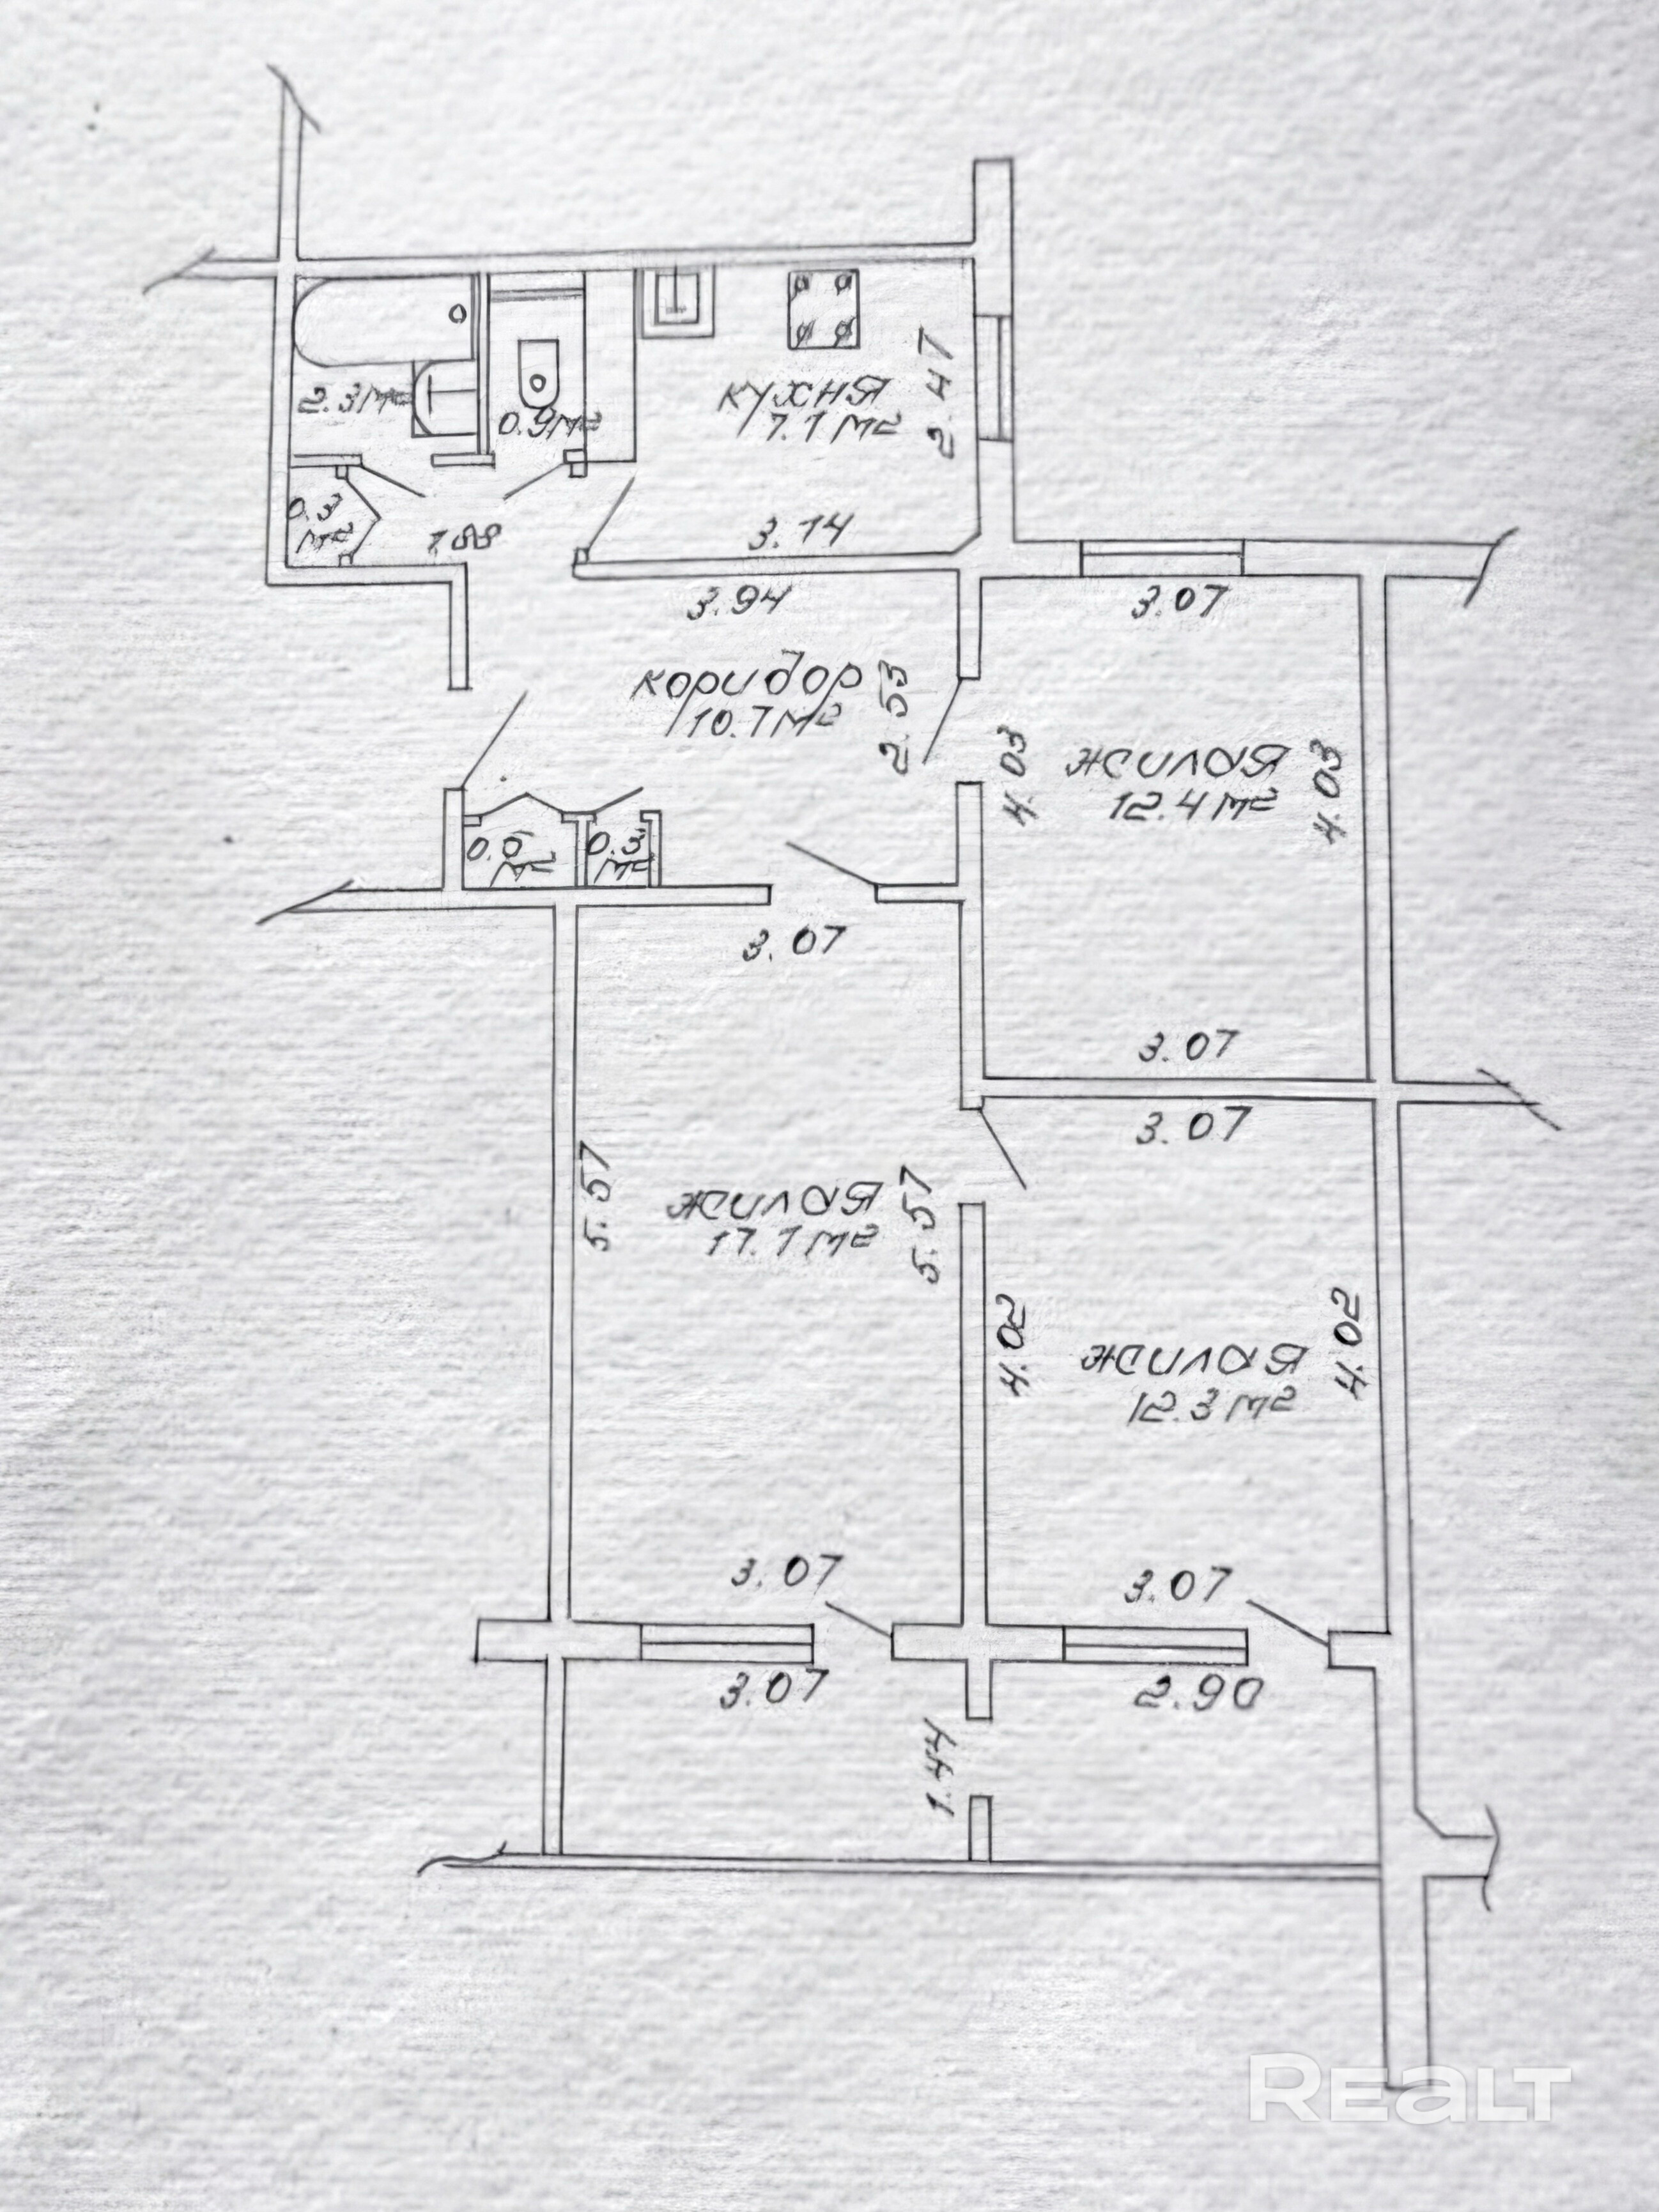 2.3 м²
0.9 м²
кухня
7.1 м²
2.47
0.3
м²
1.88
3.14
3.94
3.07
коридор
10.7 м²
2.53
4.03
жилая
12.4 м²
4.03
0.3
м²
3.07
3.07
3.07
5.57
жилая
17.1 м²
5.57
4.02
жилая
12.3 м²
4.02
3.07
3.07
3.07
2.90
1.44
REALT